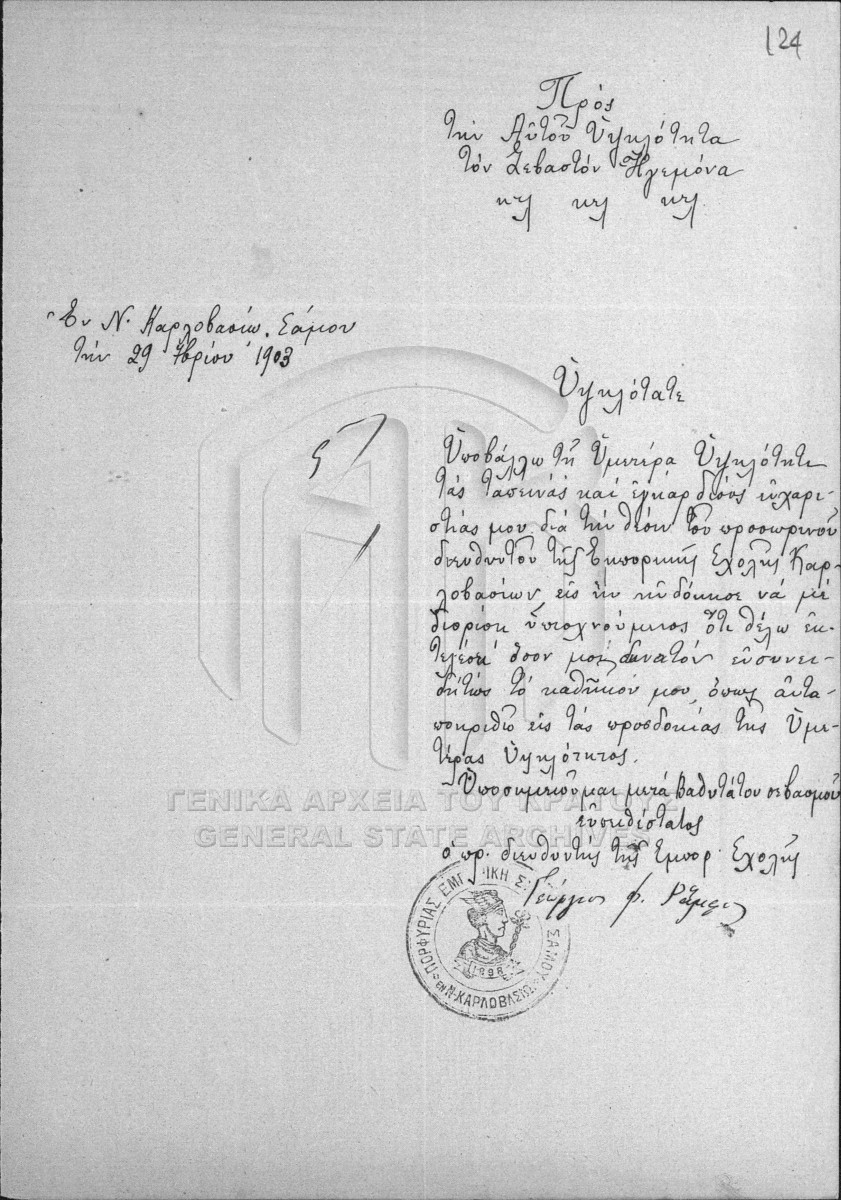 124
Πρός
τὴν Αὐτοῦ Ὑψηλότητα
τόν Σεβαστόν Ἡγεμόνα
κτλ κτλ κτλ.
Ἐν Ν. Καρλοβασίῳ Σάμου
τὴν 29 1903
Ὑψηλότατε
Ὑποβάλλω τῇ Ὑμετέρᾳ Ὑψηλότητι
τάς ταπεινάς καί ἐγκαρδίους εὐχαρι-
στίας μου διά τήν θέσιν τοῦ προσωρινοῦ
διευθυντοῦ τῆς Ἐμπορικῆς Σχολῆς Καρ-
λοβασίων εἰς ἥν ηὐδόκησε νά μέ
διορίσῃ ὑπισχνούμενος ὅτι θέλω ἐκ-
τελέσει ὅσον μοί δυνατόν εὐσυνει-
δήτως τό καθῆκόν μου, ὅπως ἀντα-
ποκριθῶ εἰς τάς προσδοκίας τῆς Ὑμε-
τέρας Ὑψηλότητος.
Ὑποσημειοῦμαι μετά βαθυτάτου σεβασμοῦ
εὐπειθέστατος
ὁ πρ. διευθυντής τῆς Ἐμπορ. Σχολῆς
Γεώργιος Φ.
ΠΟΡΦΥΡΙΑΣ ΕΜΠ ΙΚΗ Σ ΣΑΜΟΥ
ΕΝ Ν. ΚΑΡΛΟΒΑΣΙΩ
1898
ΓΕΝΙΚΑ ΑΡΧΕΙΑ ΤΟΥ ΚΡΑΤΟΥΣ
GENERAL STATE ARCHIVES